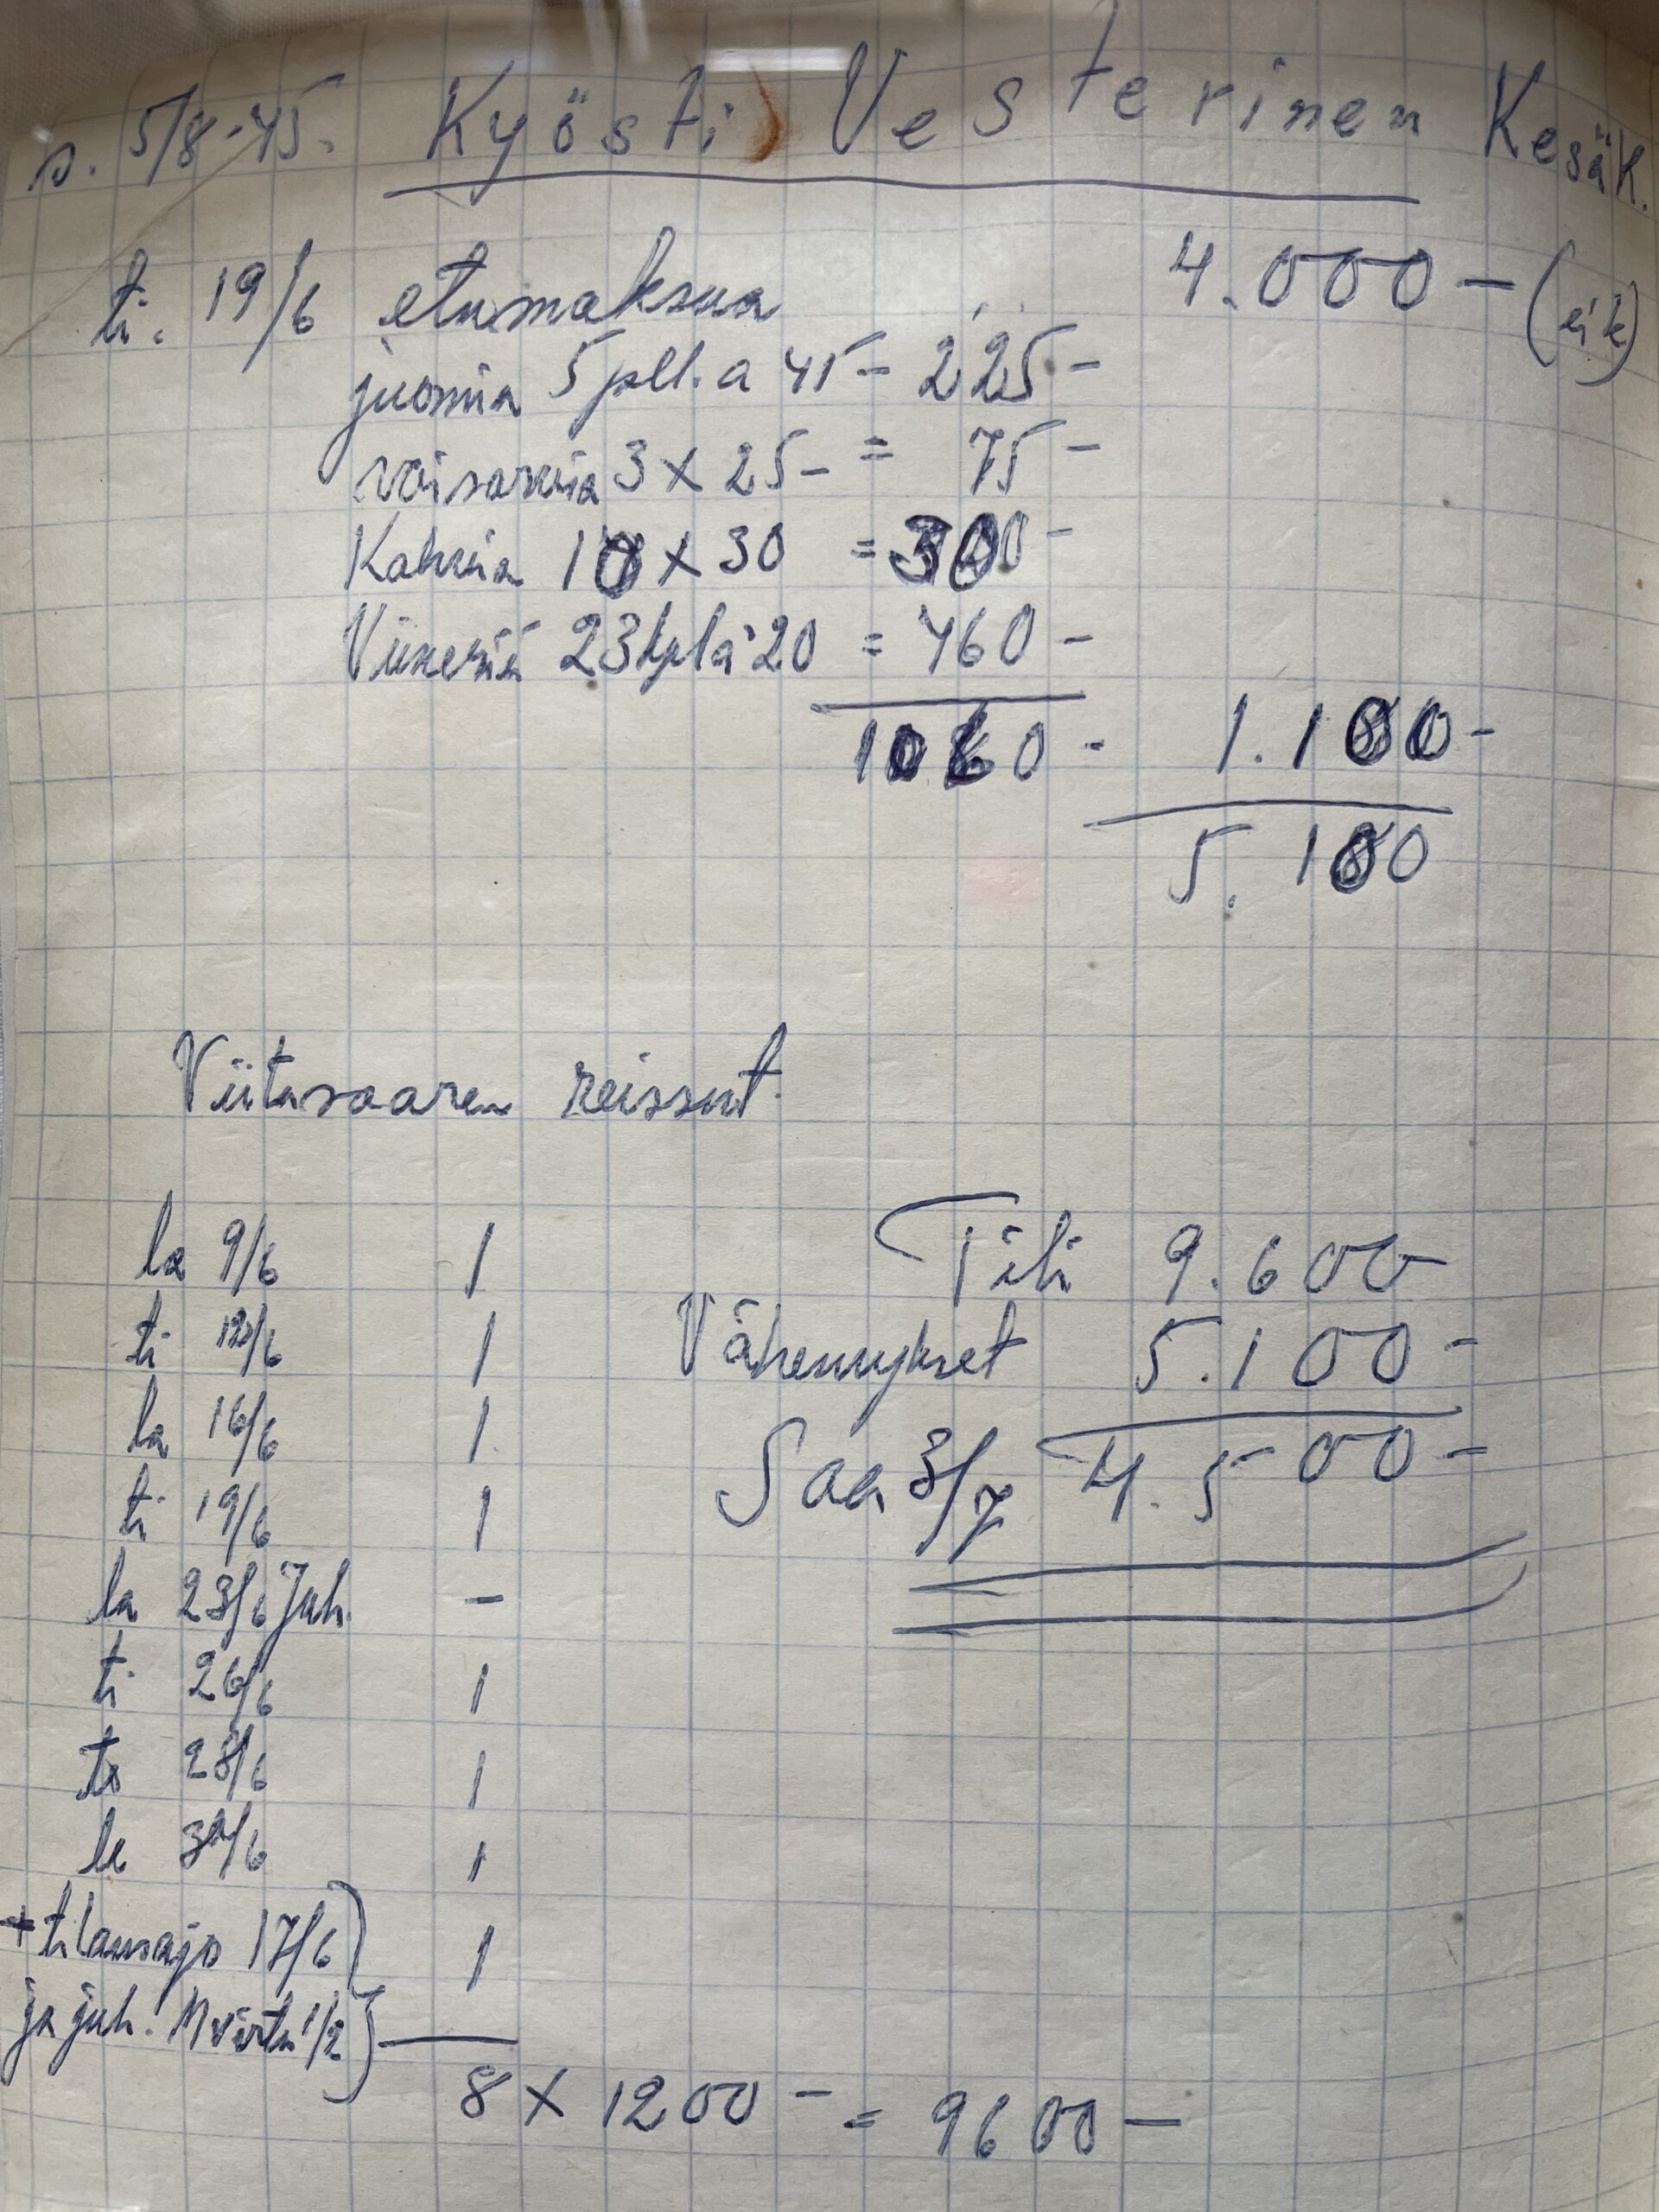 s. 5/8-45. Kyösti Vesterinen Kesäk.
ti. 19/6 etumaksua 4.000 – (eik)
juomia 5 pll. a 45 – 225 –
voisarvia 3 x 25 – = 75 –
Kahvia 10 x 30 = 300 –
Viineriä 23 kpl à 20 = 460 –
1060 – 1.100 –
5.100
Viitasaaren reissut.
la 9/6 1
ti 12/6 1
la 16/6 1
ti 19/6 1
la 23/6 Juh. –
ti 26/6 1
to 28/6 1
la 30/6 1
+ tilausajo 17/6 1
ja juh. Mvirta 1/2
8 x 1200 – = 9600 –
Tili 9.600
Vähennykset 5.100 –
Saa 3/7 4.500 –